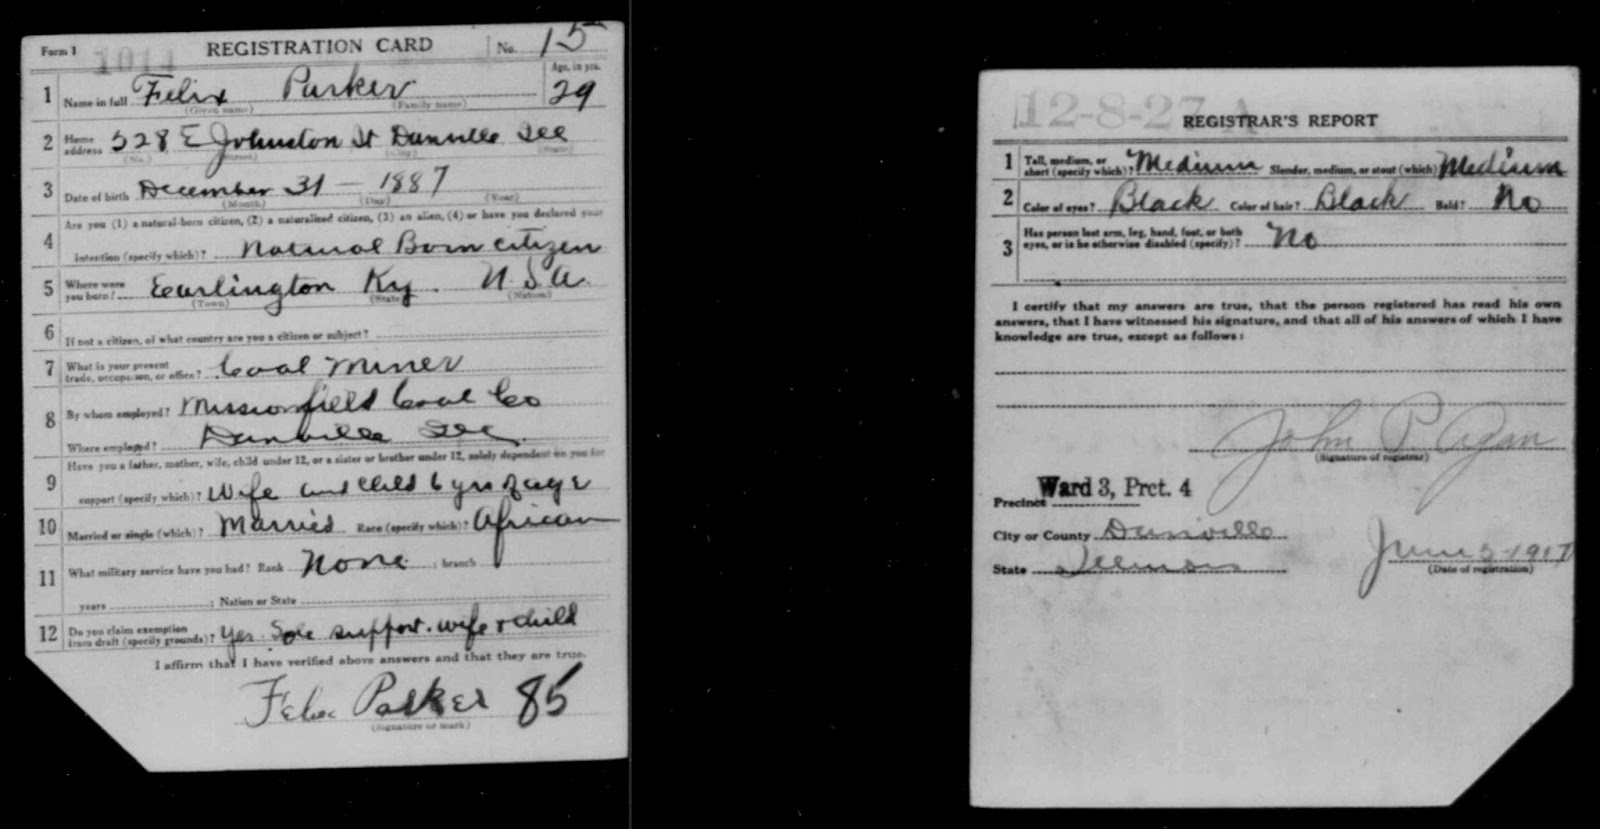 Form 1 1014 REGISTRATION CARD No. 15
1 Name in full Felix Parker Age, in yrs. 29
(Given name) (Family name)
2 Home address 328 E Johnston St Danville Ill
(No.) (Street) (City) (State)
3 Date of birth December 31 - 1887
(Month) (Day) (Year)
Are you (1) a natural-born citizen, (2) a naturalized citizen, (3) an alien, (4) or have you declared your
4 intention (specify which)? Natural Born citizen
5 Where were you born? Earlington Ky. U.S.A.
(Town) (State) (Nation)
6 If not a citizen, of what country are you a citizen or subject?
7 What is your present trade, occupation, or office? Coal Miner
8 By whom employed? Missionfield Coal Co
Where employed? Danville Ill.
Have you a father, mother, wife, child under 12, or a sister or brother under 12, solely dependent on you for
9 support (specify which)? Wife and child 6 yrs of age
10 Married or single (which)? Married Race (specify which)? African
11 What military service have you had? Rank None ; branch
years ; Nation or State
12 Do you claim exemption from draft (specify grounds)? Yes. Sole support. wife & child
I affirm that I have verified above answers and that they are true.
Felix Parker 85
(Signature or mark)
12-8-27-A
REGISTRAR'S REPORT
1 Tall, medium, or short (specify which)? Medium Slender, medium, or stout (which) Medium
2 Color of eyes? Black Color of hair? Black Bald? No
3 Has person lost arm, leg, hand, foot, or both eyes, or is he otherwise disabled (specify)? No
I certify that my answers are true, that the person registered has read his own
answers, that I have witnessed his signature, and that all of his answers of which I have
knowledge are true, except as follows:
John P. Agan
(Signature of registrar)
Precinct Ward 3, Prct. 4
City or County Danville
State Illinois June 5-1917
(Date of registration)